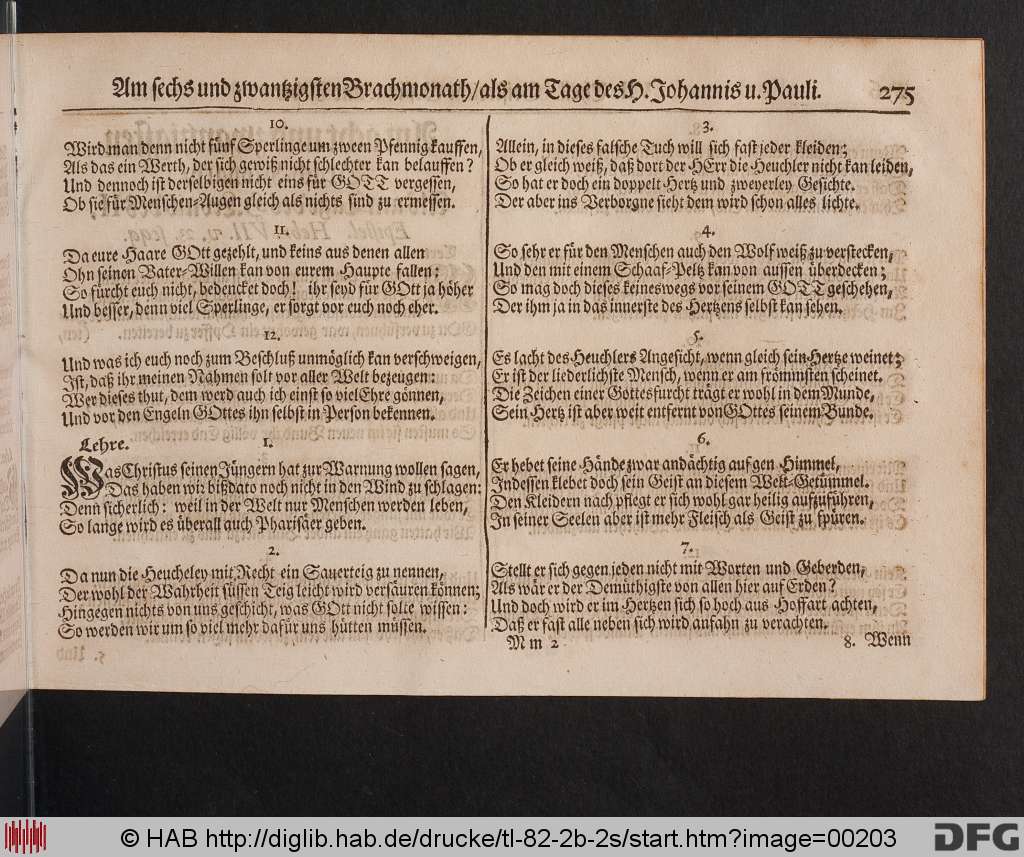 Am sechs und zwantzigsten Brachmonath/als am Tage des H. Johannis u. Pauli. 275
10.
Wird man denn nicht fünf Sperlinge um zween Pfennig kauffen,
Als das ein Werth, der sich gewiß nicht schlechter kan belauffen?
Und dennoch ist derselbigen nicht eins für GOTT vergessen,
Ob sie für Menschen-Augen gleich als nichts sind zu ermessen.
11.
Da eure Haare GOtt gezehlt, und keins aus denen allen
Ohn seinen Vater-Willen kan von eurem Haupte fallen:
So fürcht euch nicht, bedencket doch! ihr seyd für GOtt ja höher
Und besser, denn viel Sperlinge, er sorgt vor euch noch eher.
12.
Und was ich euch noch zum Beschluß unmöglich kan verschweigen,
Ist, daß ihr meinen Nahmen solt vor aller Welt bezeugen:
Wer dieses thut, dem werd auch ich einst so viel Ehre gönnen,
Und vor den Engeln GOttes ihn selbst in Person bekennen.
Lehre. 1.
Was Christus seinen Jüngern hat zur Warnung wollen sagen,
Das haben wir bißdato noch nicht in den Wind zu schlagen:
Denn sicherlich: weil in der Welt nur Menschen werden leben,
So lange wird es überall auch Pharisäer geben.
2.
Da nun die Heucheley mit Recht ein Sauerteig zu nennen,
Der wohl der Wahrheit süssen Teig leicht wird versäuren können;
Hingegen nichts von uns geschicht, was GOtt nicht solte wissen:
So werden wir um so viel mehr dafür uns hütten müssen.
3.
Allein, in dieses falsche Tuch will sich fast jeder kleiden;
Ob er gleich weiß, daß dort der HErr die Heuchler nicht kan leiden,
So hat er doch ein doppelt Hertz und zweyerley Gesichte.
Der aber ins Verborgne sieht dem wird schon alles lichte.
4.
So sehr er für den Menschen auch den Wolf weiß zu verstecken,
Und den mit einem Schaaf-Peltz kan von aussen überdecken;
So mag doch dieses keineswegs vor seinem GOTT geschehen,
Der ihm ja in das innerste des Hertzens selbst kan sehen.
5.
Es lacht des Heuchlers Angesicht, wenn gleich sein Hertze weinet;
Er ist der liederlichste Mensch, wenn er am frömmsten scheinet.
Die Zeichen einer Gottesfurcht trägt er wohl in dem Munde,
Sein Hertz ist aber weit entfernt von GOttes seinem Bunde.
6.
Er hebet seine Hände zwar andächtig auf gen Himmel,
Indessen klebet doch sein Geist an diesem Welt-Getümmel.
Den Kleidern nach pflegt er sich wohl gar heilig aufzuführen,
In seiner Seelen aber ist mehr Fleisch als Geist zu spüren.
7.
Stellt er sich gegen jeden nicht mit Worten und Geberden,
Als wär er der Demüthigste von allen hier auf Erden?
Und doch wird er im Hertzen sich so hoch aus Hoffart achten,
Daß er fast alle neben sich wird anfahn zu verachten.
M m 2 8. Wenn
© HAB http://diglib.hab.de/drucke/tl-82-2b-2s/start.htm?image=00203
DFG